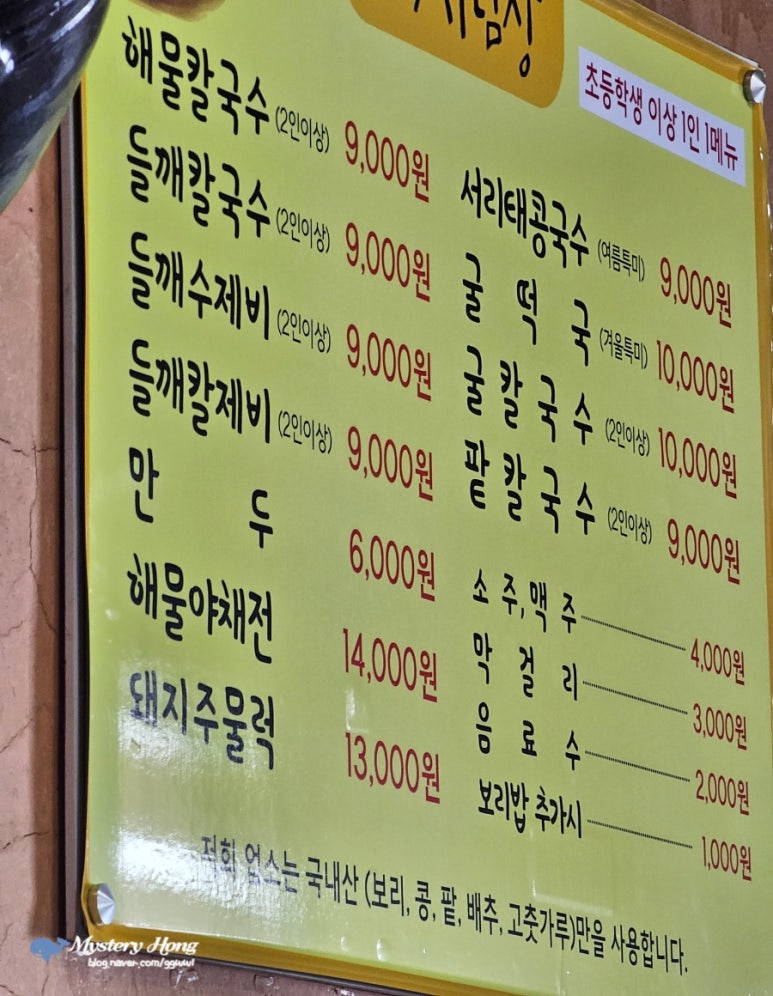 초등학생 이상 1인 1메뉴
해물칼국수 (2인이상) 9,000원
들깨칼국수 (2인이상) 9,000원
들깨수제비 (2인이상) 9,000원
들깨칼제비 (2인이상) 9,000원
만 두 6,000원
해물야채전 14,000원
돼지주물럭 13,000원
서리태콩국수 (여름특미) 9,000원
굴 떡 국 (겨울특미) 10,000원
굴 칼 국 수 (2인이상) 10,000원
팥 칼 국 수 (2인이상) 9,000원
소 주, 맥 주 4,000원
막 걸 리 3,000원
음 료 수 2,000원
보리밥 추가시 1,000원
저희 업소는 국내산 (보리, 콩, 팥, 배추, 고춧가루)만을 사용합니다.
Mystery Hong